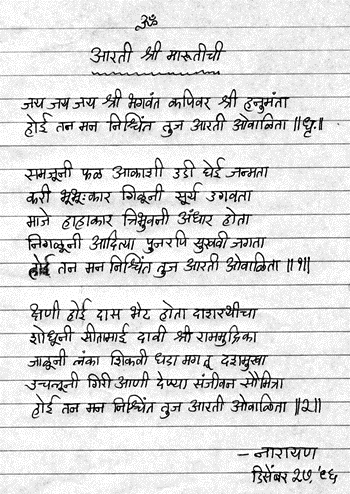 ॐ
आरती श्री मारूतीची
जय जय जय श्री भगवंत कपिवर श्री हनुमंता
होई तन मन निश्चिंत तुज आरती ओवाळिता ॥धृ॥
समजूनी फळ आकाशी उडी घेई जन्मता
करी भूभूःकार गिळूनी सूर्य उगवता
माजे हाहाकार त्रिभुवनी अंधार होता
निगळूनी आदित्या पुनरपि सुखवी जगता
होई तन मन निश्चिंत तुज आरती ओवाळिता ॥१॥
क्षणी होई दास भेट होता दाशरथीचा
शोधूनी सीतामाई दावी श्री राममुद्रिका
जाळूनी लंका शिकवी धडा मग तू दशमुखा
उचलूनी गिरी आणी देण्या संजीवन सौमित्रा
होई तन मन निश्चिंत तुज आरती ओवाळिता ॥२॥
– नारायण
डिसेंबर २७,'९६